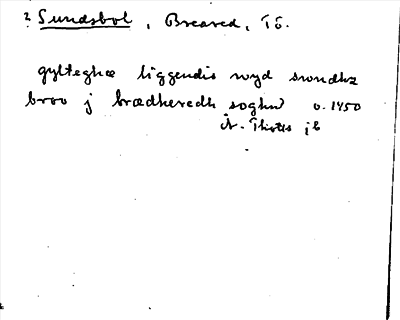 ? Sundsbol, Breared, Tö.
gylteghæ liggendis wyd swndhz
broo j brædheredh soghn o. 1450
Å. Thotts jb